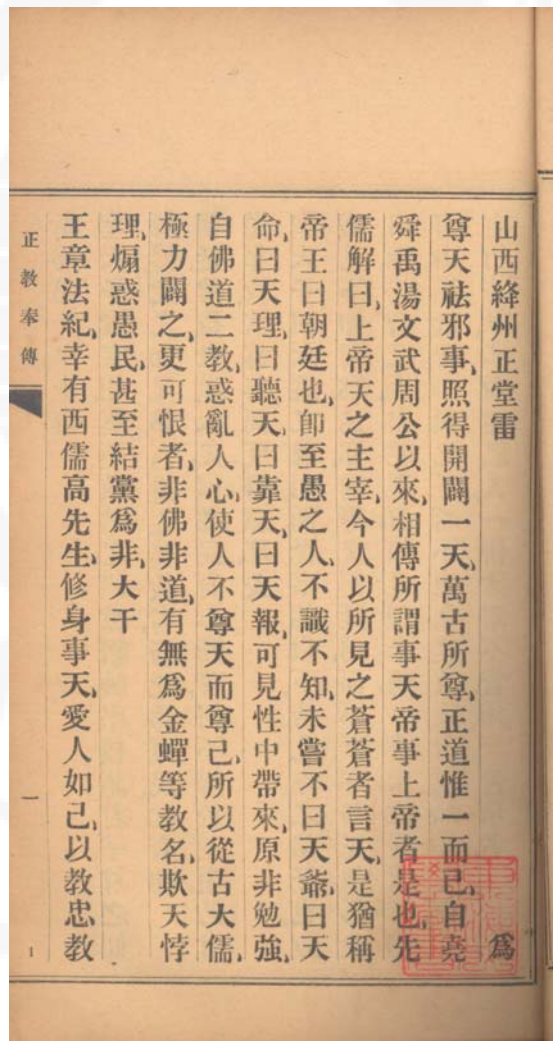 山西絳州正堂雷　為
尊天祛邪事、照得開闢一天、萬古所尊、正道惟一而已、自堯
舜禹湯文武周公以來、相傳所謂事天帝事上帝者是也、先
儒解曰、上帝天之主宰、今人以所見之蒼蒼者言天、是猶稱
帝王曰朝廷也、卽至愚之人、不識不知、未嘗不曰天爺、曰天
命、曰天理、曰聽天、曰靠天、曰天報、可見性中帶來、原非勉強、
自佛道二教、惑亂人心、使人不尊天而尊己、所以從古大儒、
極力闢之、更可恨者、非佛非道、有無爲金蟬等教名、欺天悖
理、煽惑愚民、甚至結黨爲非、大干
王章法紀、幸有西儒高先生、修身事天、愛人如己、以教忠教
正教奉傳
一
1